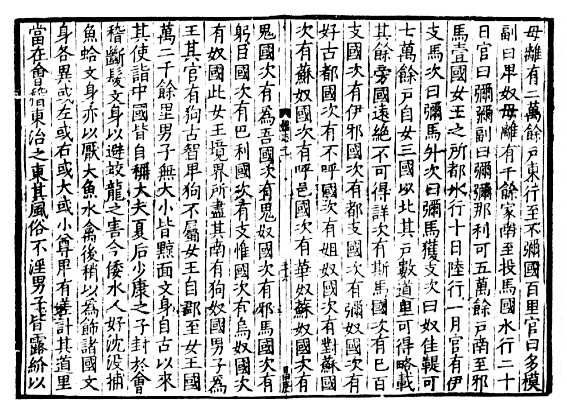 母離有二萬餘戸東行至不彌國百里官曰多模
副曰卑奴母離有千餘家南至投馬國水行二十
日官曰彌彌副曰彌彌那利可五萬餘戸南至邪
馬壹國女王之所都水行十日陸行一月官有伊
支馬次曰彌馬升次曰彌馬獲支次曰奴佳鞮可
七萬餘戸自女王國以北其戸數道里可得略載
其餘旁國遠絶不可得詳次有斯馬國次有已百
支國次有伊邪國次有都支國次有彌奴國次有
好古都國次有不呼國次有姐奴國次有對蘇國
次有蘇奴國次有呼邑國次有華奴蘇奴國次有
鬼國次有為吾國次有鬼奴國次有邪馬國次有
躬臣國次有巴利國次有支惟國次有烏奴國次
有奴國此女王境界所盡其南有狗奴國男子為
王其官有狗古智卑狗不屬女王自郡至女王國
萬二千餘里男子無大小皆黥面文身自古以來
其使詣中國皆自稱大夫夏后少康之子封於會
稽斷髮文身以避蛟龍之害今倭水人好沈没捕
魚蛤文身亦以厭大魚水禽後稍以為飾諸國文
身各異或左或右或大或小尊卑有差計其道里
當在會稽東治之東其風俗不淫男子皆露紒以